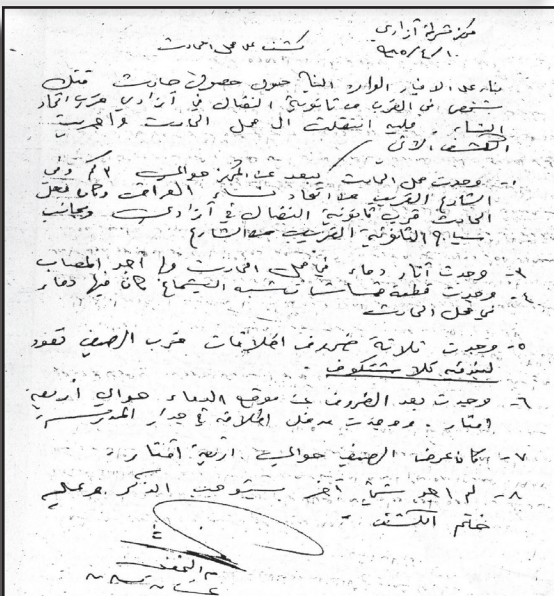 مركز شرطة آزادي
٩٨٥/٤/١٠
كشف على محل الحادث
بناء على الاخبار الوارد الينا حول حصول حادث قتل
شخص في القرب من ثانوية النضال في آزادي قرب اتحاد
النساء . عليه انتقلت الى محل الحادث واجريت
الكشف الاتي
١- وجدت محل الحادث يبعد عن المركز حوالي ٣ كم وفي
الشارع القريب من اتحاد نساء العراق وكان محل
الحادث قرب ثانوية النضال في آزادي وبجانب
سياج الثانوية القريب من الشارع
٣- وجدت آثار دماء في محل الحادث ولم اجد المصاب
٤- وجدت قطعة قماش تشبه اليشماغ كان فيها دماء
في محل الحادث
٥- وجدت ثلاثة ظروف اطلاقات قرب الرصيف تعود
لبندقية كلاشنكوف .
٦- وجدت بعد الظروف عن موقع الدماء حوالي اربعة
امتار . ووجدت مدخل اطلاقة في جدار المدرسة
٧- كان عرض الرصيف حوالي اربعة امتار .
٨- لم اجد شيئ آخر يستوجب الذكر وعليه
ختم الكشف .